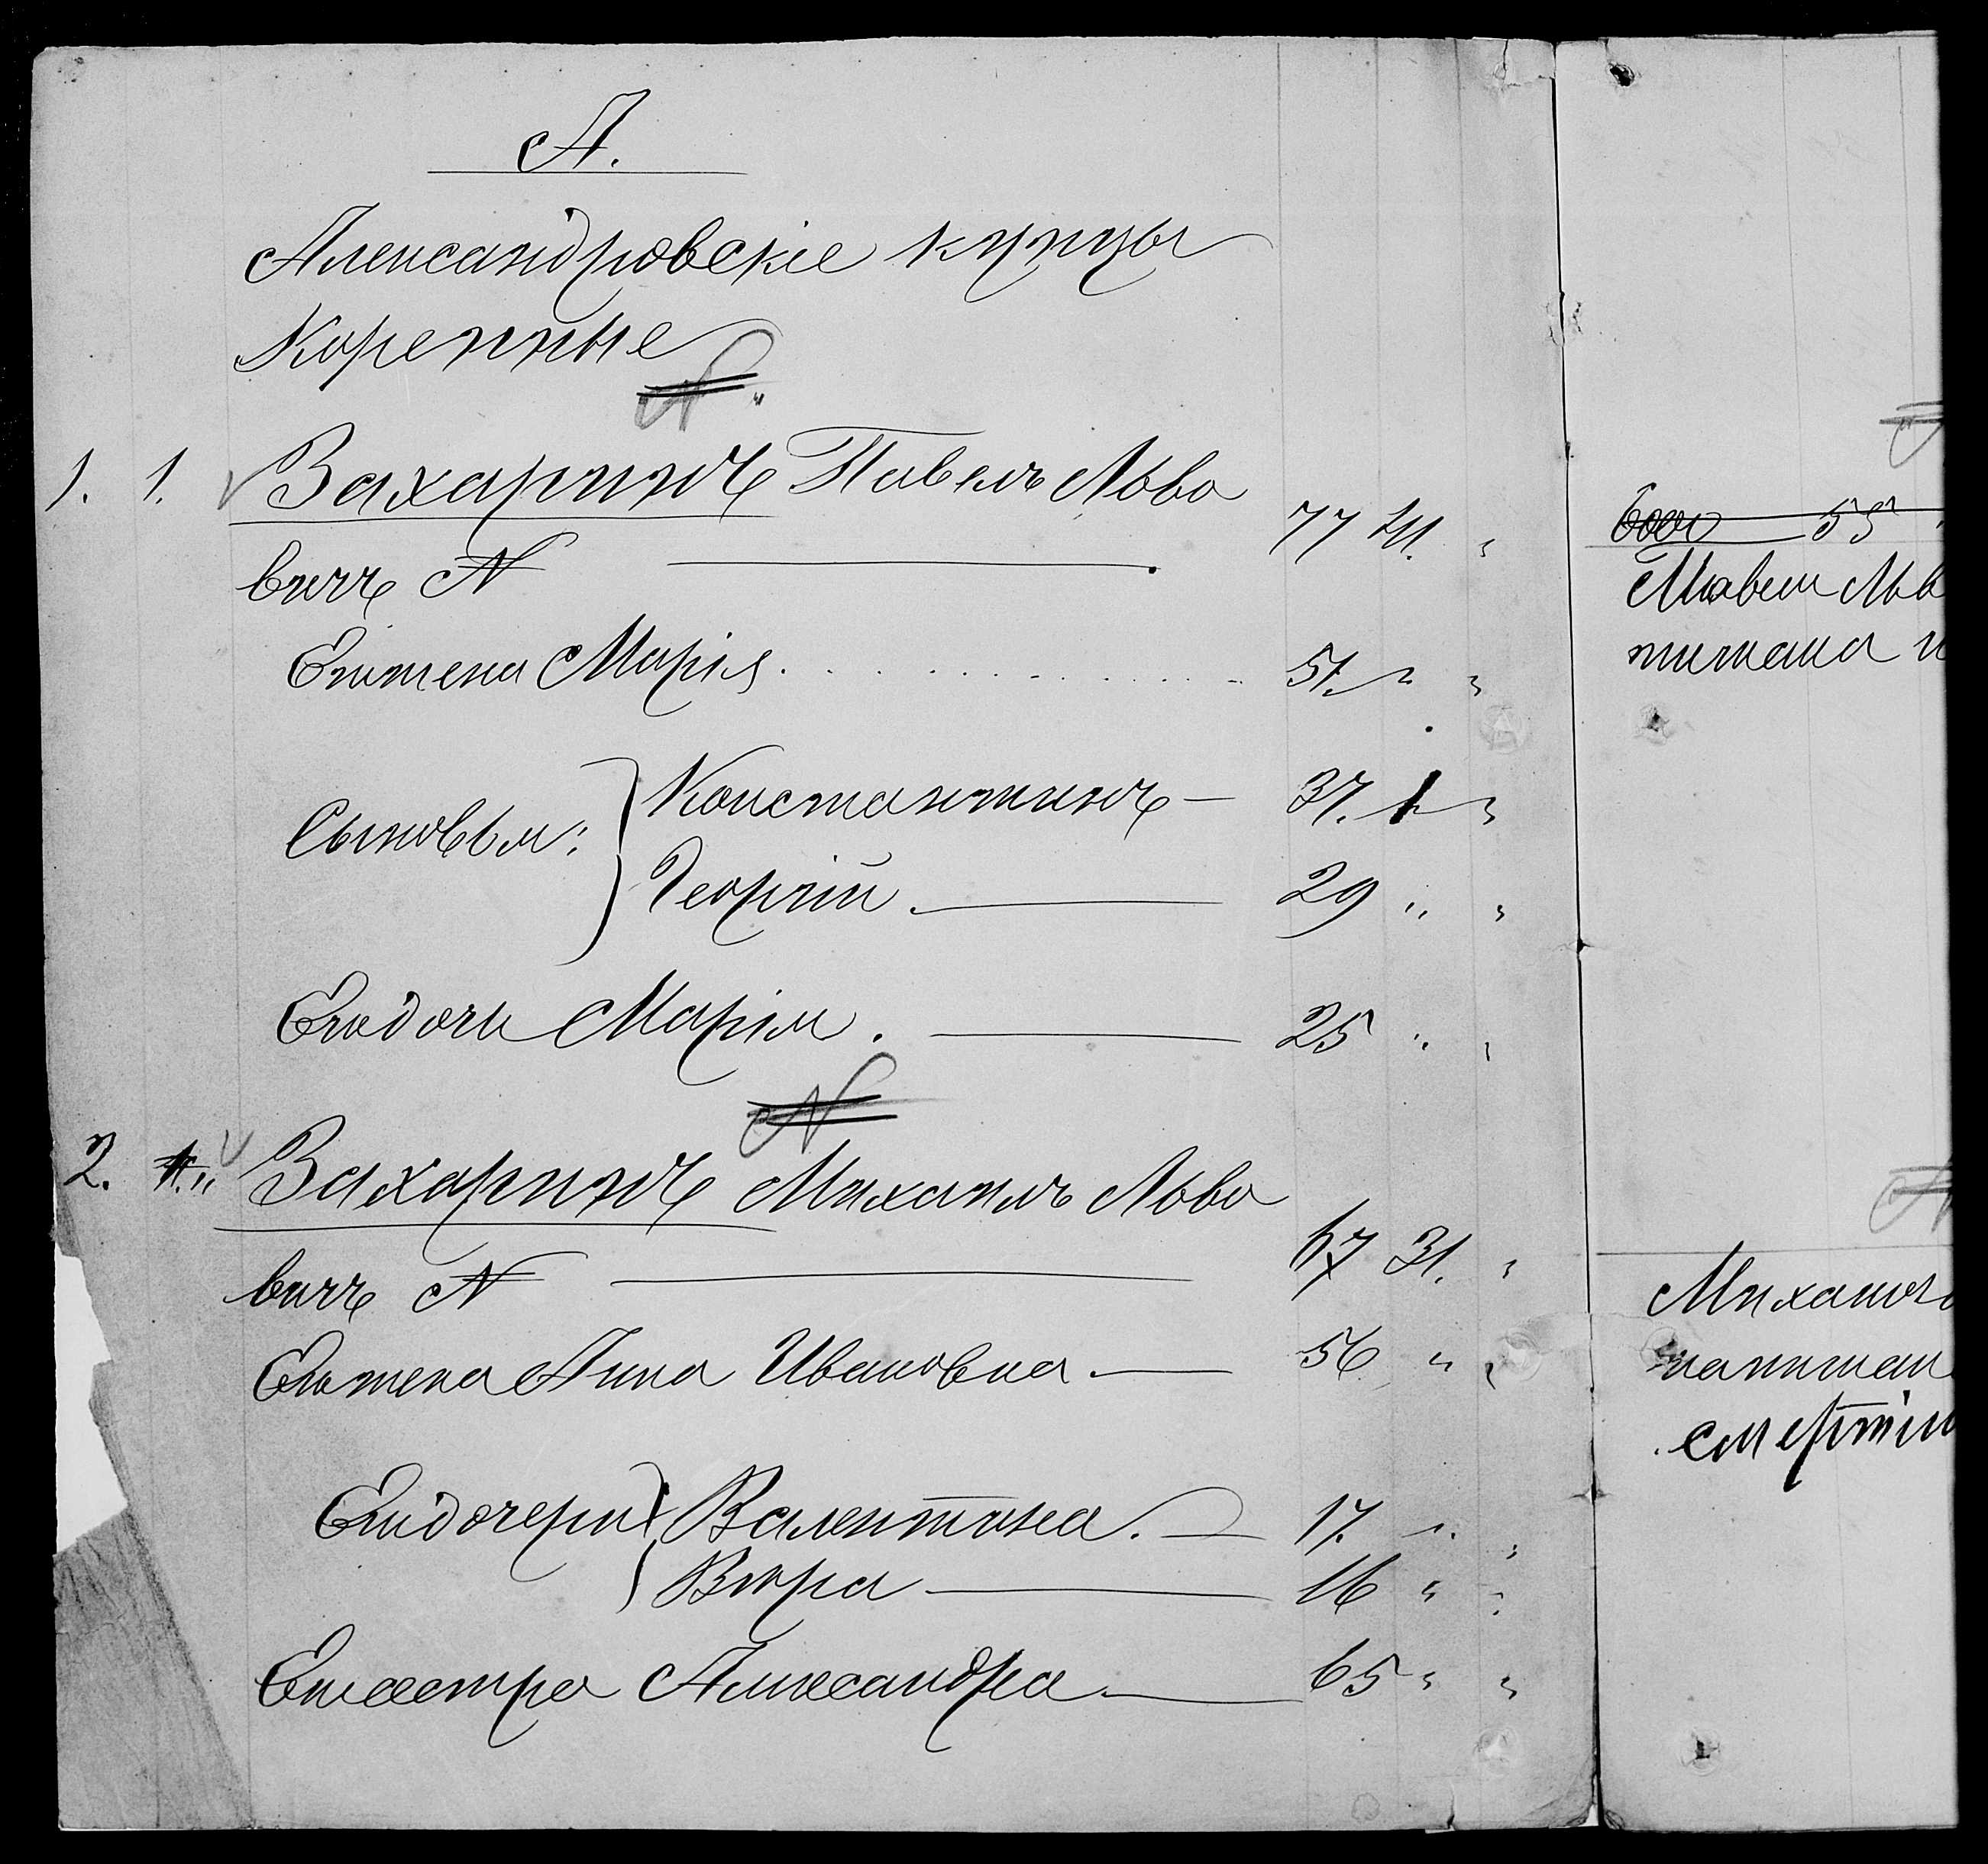 А.
Александровскіе купцы
Коренные
N
1. 1. Захаринъ Павелъ Льво
вичъ N — 77 "
Его жена Марія . . . . . 51. " "
Сыновья: Константинъ — 37. " "
Георгій. — 29 " "
Его дочь Марія. — 25 " "
N
2. 1." Захаринъ Михаилъ Льво
вичъ N — 67 31. "
Его жена Анна Ивановна — 56 " "
Его дочери Валентина. — 17. " "
Вѣра — 16 " "
Его сестра Александра — 65 " "
55
Павелъ Льв
Михаилъ